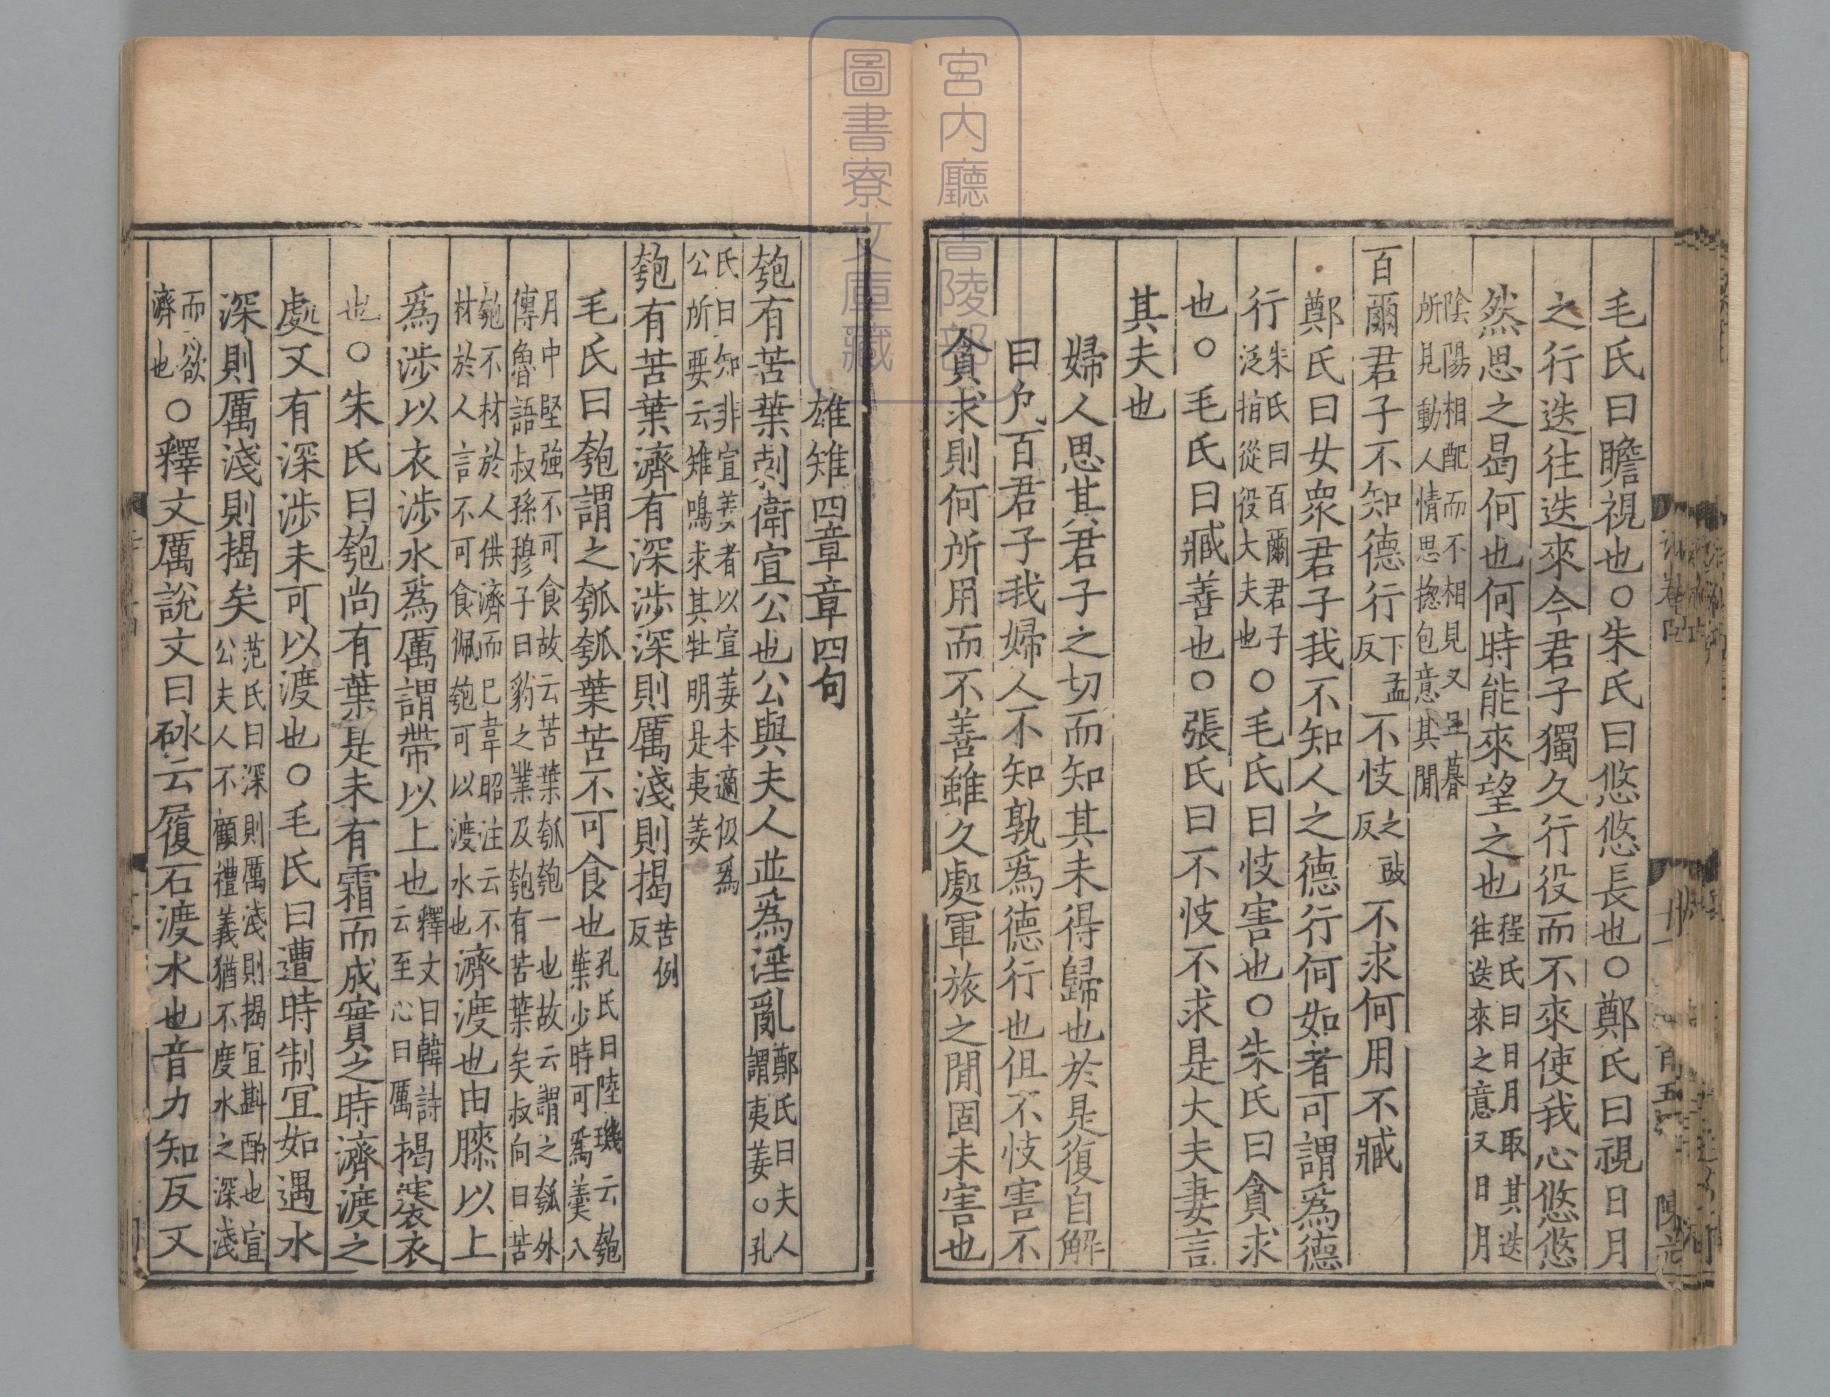 毛氏曰瞻視也○朱氏曰悠悠長也○鄭氏曰視日月
之行迭往迭來今君子獨久行役而不來使我心悠悠
然思之曷何也何時能來望之也程氏曰日月取其迭往迭來之意又日月
陰陽相配而不相見又旦暮所見動人情思揔包意其閒
百爾君子不知德行下孟反不忮之豉反不求何用不臧
鄭氏曰女衆君子我不知人之德行何如者可謂爲德
行朱氏曰百爾君子泛指從役大夫也○毛氏曰忮害也○朱氏曰貪求
也○毛氏曰臧善也○張氏曰不忮不求是大夫妻言
其夫也
婦人思其君子之切而知其未得歸也於是復自解
曰凡百君子我婦人不知孰爲德行也但不忮害不
貪求則何所用而不善雖久處軍旅之閒固未害也
雄雉四章章四句
匏有苦葉刺衛宣公也公與夫人並爲淫亂鄭氏曰夫人謂夷姜○孔
氏曰知非宣姜者以宣姜本適伋爲公所要云雉鳴求其牡明是夷姜
匏有苦葉濟有深涉深則厲淺則揭苦例反
毛氏曰匏謂之瓠瓠葉苦不可食也孔氏曰陸璣云匏葉少時可爲羹八
月中堅強不可食故云苦葉瓠匏一也故云謂之瓠外傳魯語叔孫穆子曰豹之業及匏有苦葉矣叔向曰苦
匏不材於人供濟而已韋昭注云不材於人言不可食佩匏可以渡水也濟渡也由膝以上
爲涉以衣涉水爲厲謂帶以上也釋文曰韓詩云至心曰厲揭褰衣
也○朱氏曰匏尚有葉是未有霜而成實之時濟渡之
處又有深涉未可以渡也○毛氏曰遭時制宜如遇水
深則厲淺則揭矣范氏曰深則厲淺則揭宜斟酌也宣公夫人不顧禮義猶不度水之深淺
而欲濟也○釋文厲說文曰砅云履石渡水也音力知反又
宮内廳書陵部
圖書寮文庫藏